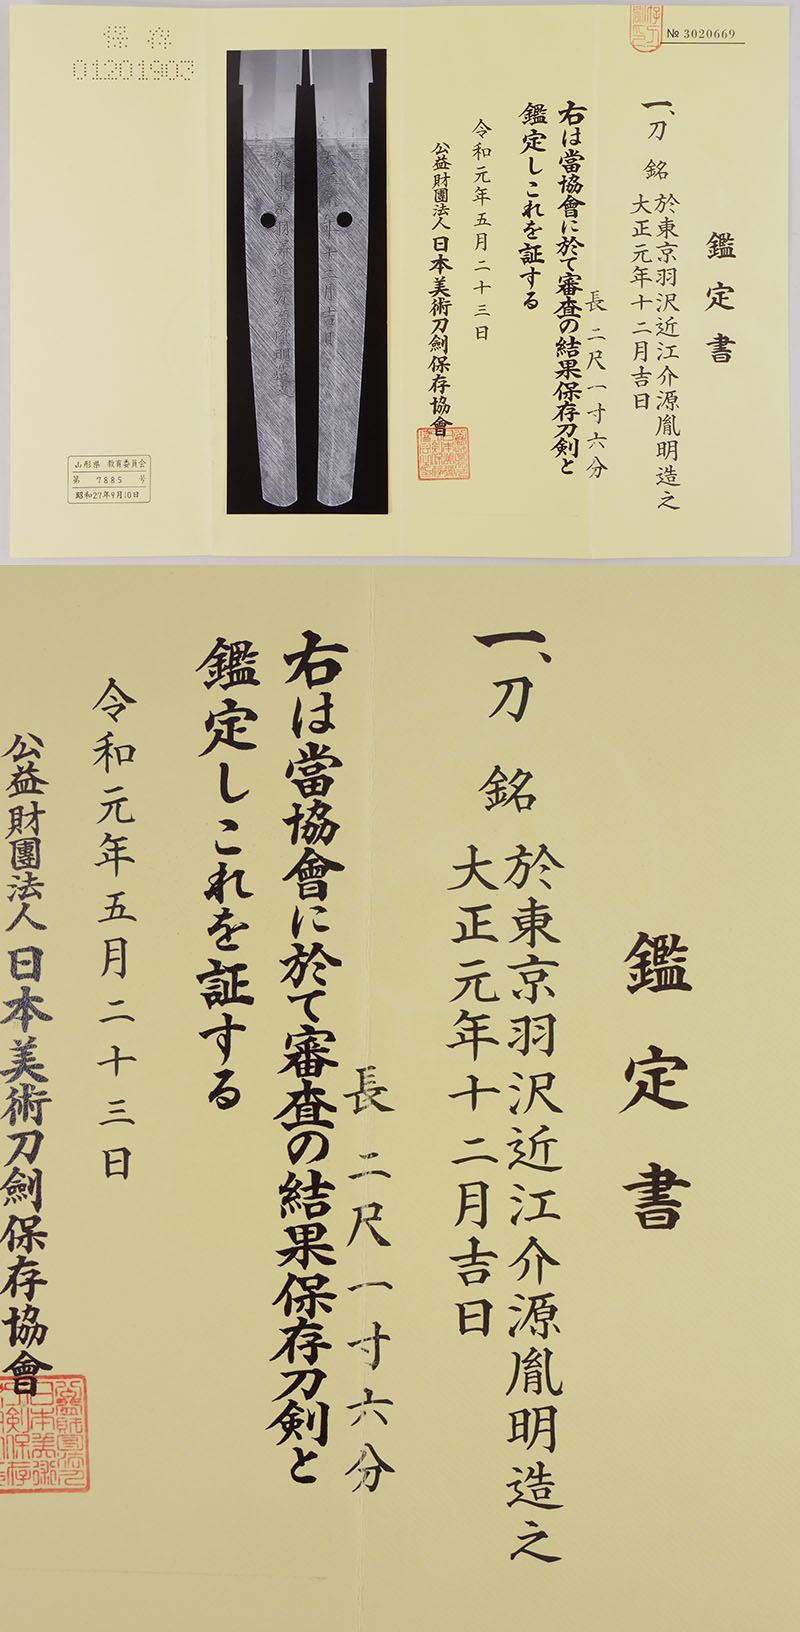 保存
01201903
№ 3020669
鑑定書
一、刀 銘 於東京羽沢近江介源胤明造之
大正元年十二月吉日
長 二尺一寸六分
右は當協會に於て審査の結果保存刀剣と
鑑定しこれを証する
令和元年五月二十三日
公益財團法人日本美術刀劍保存協會
山形県 教育委員会
第 7885 号
昭和27年9月10日
鑑定書
一、刀 銘 於東京羽沢近江介源胤明造之
大正元年十二月吉日
長 二尺一寸六分
右は當協會に於て審査の結果保存刀剣と
鑑定しこれを証する
令和元年五月二十三日
公益財團法人日本美術刀劍保存協會